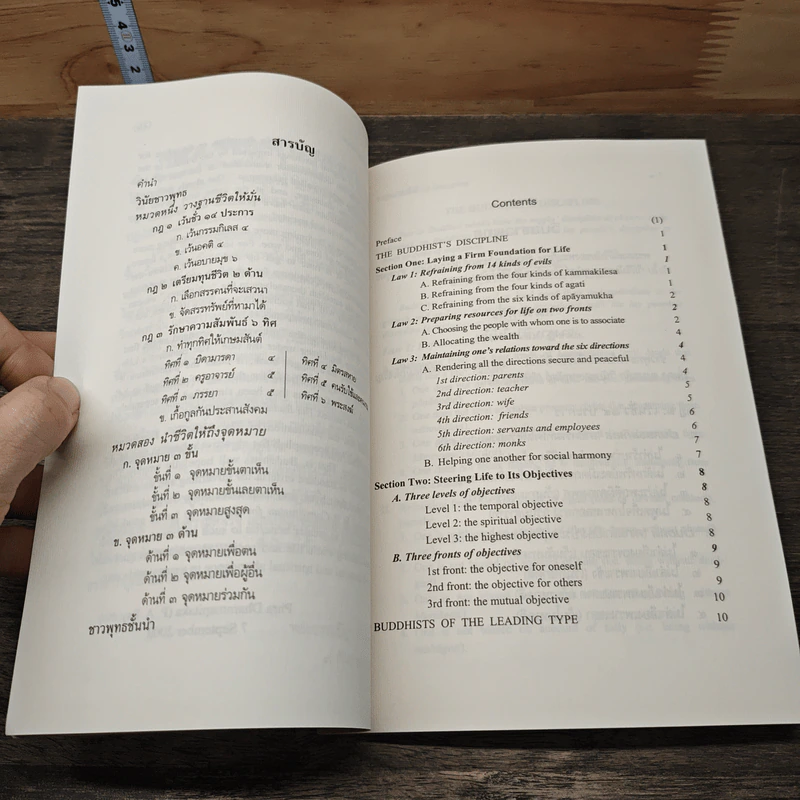 สารบัญ
คำนำ
วินัยชาวพุทธ
หมวดหนึ่ง วางฐานชีวิตให้มั่น
กฎ ๑ เว้นชั่ว ๑๔ ประการ
ก. เว้นกรรมกิเลส ๔
ข. เว้นอคติ ๔
ค. เว้นอบายมุข ๖
กฎ ๒ เตรียมทุนชีวิต ๒ ด้าน
ก. เลือกสรรคนที่จะเสวนา
ข. จัดสรรทรัพย์ที่หามาได้
กฎ ๓ รักษาความสัมพันธ์ ๖ ทิศ
ก. ทำทุกทิศให้เกษมสันต์
ทิศที่ ๑ มารดาบิดา ๔ ทิศที่ ๔ มิตรสหาย
ทิศที่ ๒ ครูอาจารย์ ๕ ทิศที่ ๕
ทิศที่ ๓ ภรรยา ๕ ทิศที่ ๖ พระสงฆ์
ข. เกื้อกูลกันประสานสังคม
หมวดสอง นำชีวิตให้ถึงจุดหมาย
ก. จุดหมาย ๓ ขั้น
ขั้นที่ ๑ จุดหมายขั้นตาเห็น
ขั้นที่ ๒ จุดหมายขั้นเลยตาเห็น
ขั้นที่ ๓ จุดหมายสูงสุด
ข. จุดหมาย ๓ ด้าน
ด้านที่ ๑ จุดหมายเพื่อตน
ด้านที่ ๒ จุดหมายเพื่อผู้อื่น
ด้านที่ ๓ จุดหมายร่วมกัน
ชาวพุทธชั้นนำ
Contents
Preface (1)
THE BUDDHIST'S DISCIPLINE 1
Section One: Laying a Firm Foundation for Life 1
Law 1: Refraining from 14 kinds of evils 1
A. Refraining from the four kinds of kammakilesa 1
B. Refraining from the four kinds of agati 1
C. Refraining from the six kinds of apāyamukha 2
Law 2: Preparing resources for life on two fronts 2
A. Choosing the people with whom one is to associate 2
B. Allocating the wealth 4
Law 3: Maintaining one's relations toward the six directions 4
A. Rendering all the directions secure and peaceful 4
1st direction: parents 4
2nd direction: teacher 5
3rd direction: wife 5
4th direction: friends 6
5th direction: servants and employees 6
6th direction: monks 7
B. Helping one another for social harmony 7
Section Two: Steering Life to Its Objectives 8
A. Three levels of objectives 8
Level 1: the temporal objective 8
Level 2: the spiritual objective 8
Level 3: the highest objective 8
B. Three fronts of objectives 9
1st front: the objective for oneself 9
2nd front: the objective for others 9
3rd front: the mutual objective 10
BUDDHISTS OF THE LEADING TYPE 10
5
4
3
2